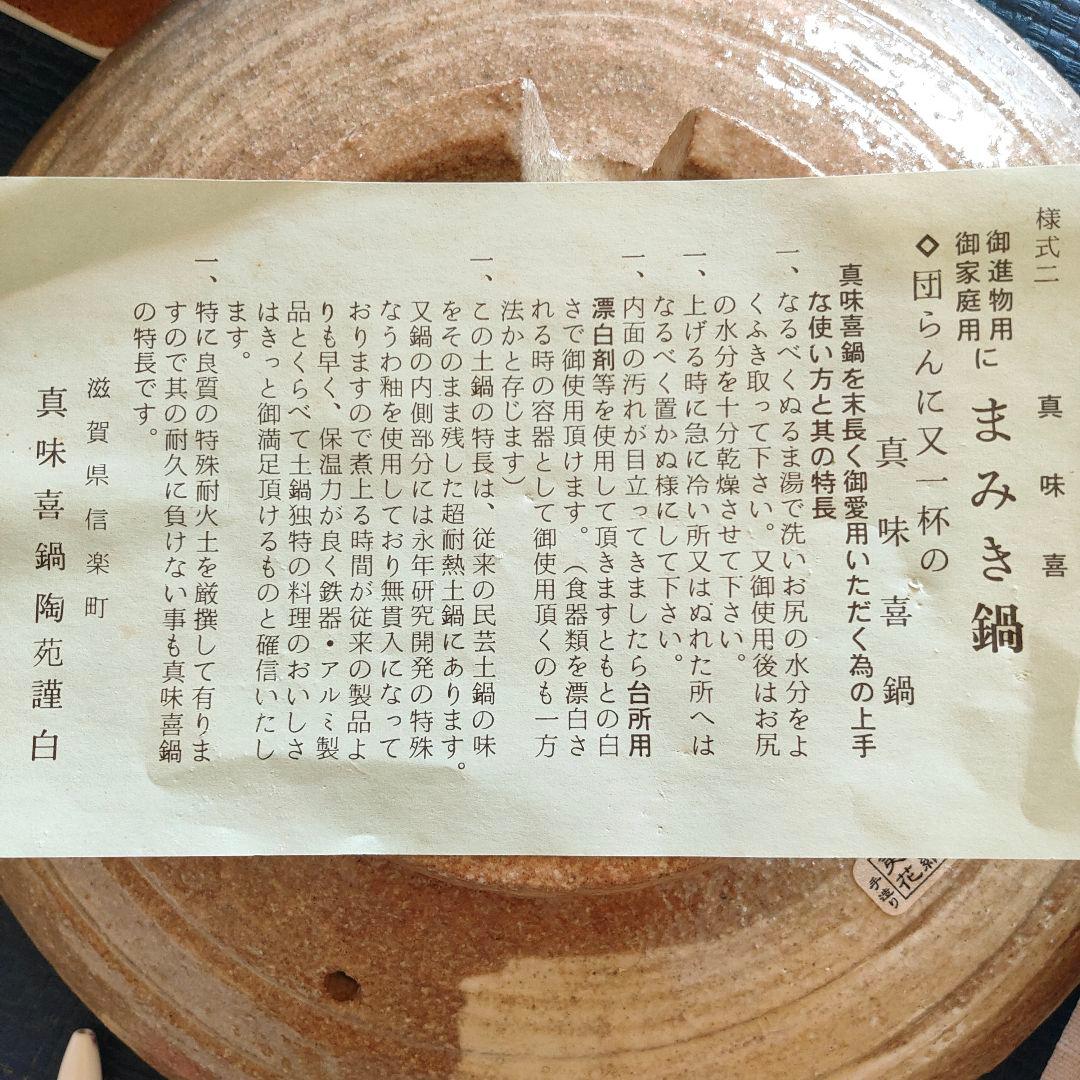 様式二
真味喜
御進物用
御家庭用
に まみき鍋
◇団らんに又一杯の
真味喜鍋
真味喜鍋を末長く御愛用いただく為の上手
な使い方と其の特長
一、なるべくぬるま湯で洗いお尻の水分をよ
くふき取って下さい。又御使用後はお尻
の水分を十分乾燥させて下さい。
一、上げる時に急に冷い所又はぬれた所へは
なるべく置かぬ様にして下さい。
一、内面の汚れが目立ってきましたら台所用
漂白剤等を使用して頂きますともとの白
さで御使用頂けます。（食器類を漂白さ
れる時の容器として御使用頂くのも一方
法かと存じます）
一、この土鍋の特長は、従来の民芸土鍋の味
をそのまま残した超耐熱土鍋にあります。
又鍋の内側部分には永年研究開発の特殊
なうわ釉を使用しており無貫入になって
おりますので煮上る時間が従来の製品よ
りも早く、保温力が良く鉄器・アルミ製
品とくらべて土鍋独特の料理のおいしさ
はきっと御満足頂けるものと確信いたし
ます。
一、特に良質の特殊耐火土を厳撰して有りま
すので其の耐久に負けない事も真味喜鍋
の特長です。
滋賀県信楽町
真味喜鍋陶苑謹白
花
手造り